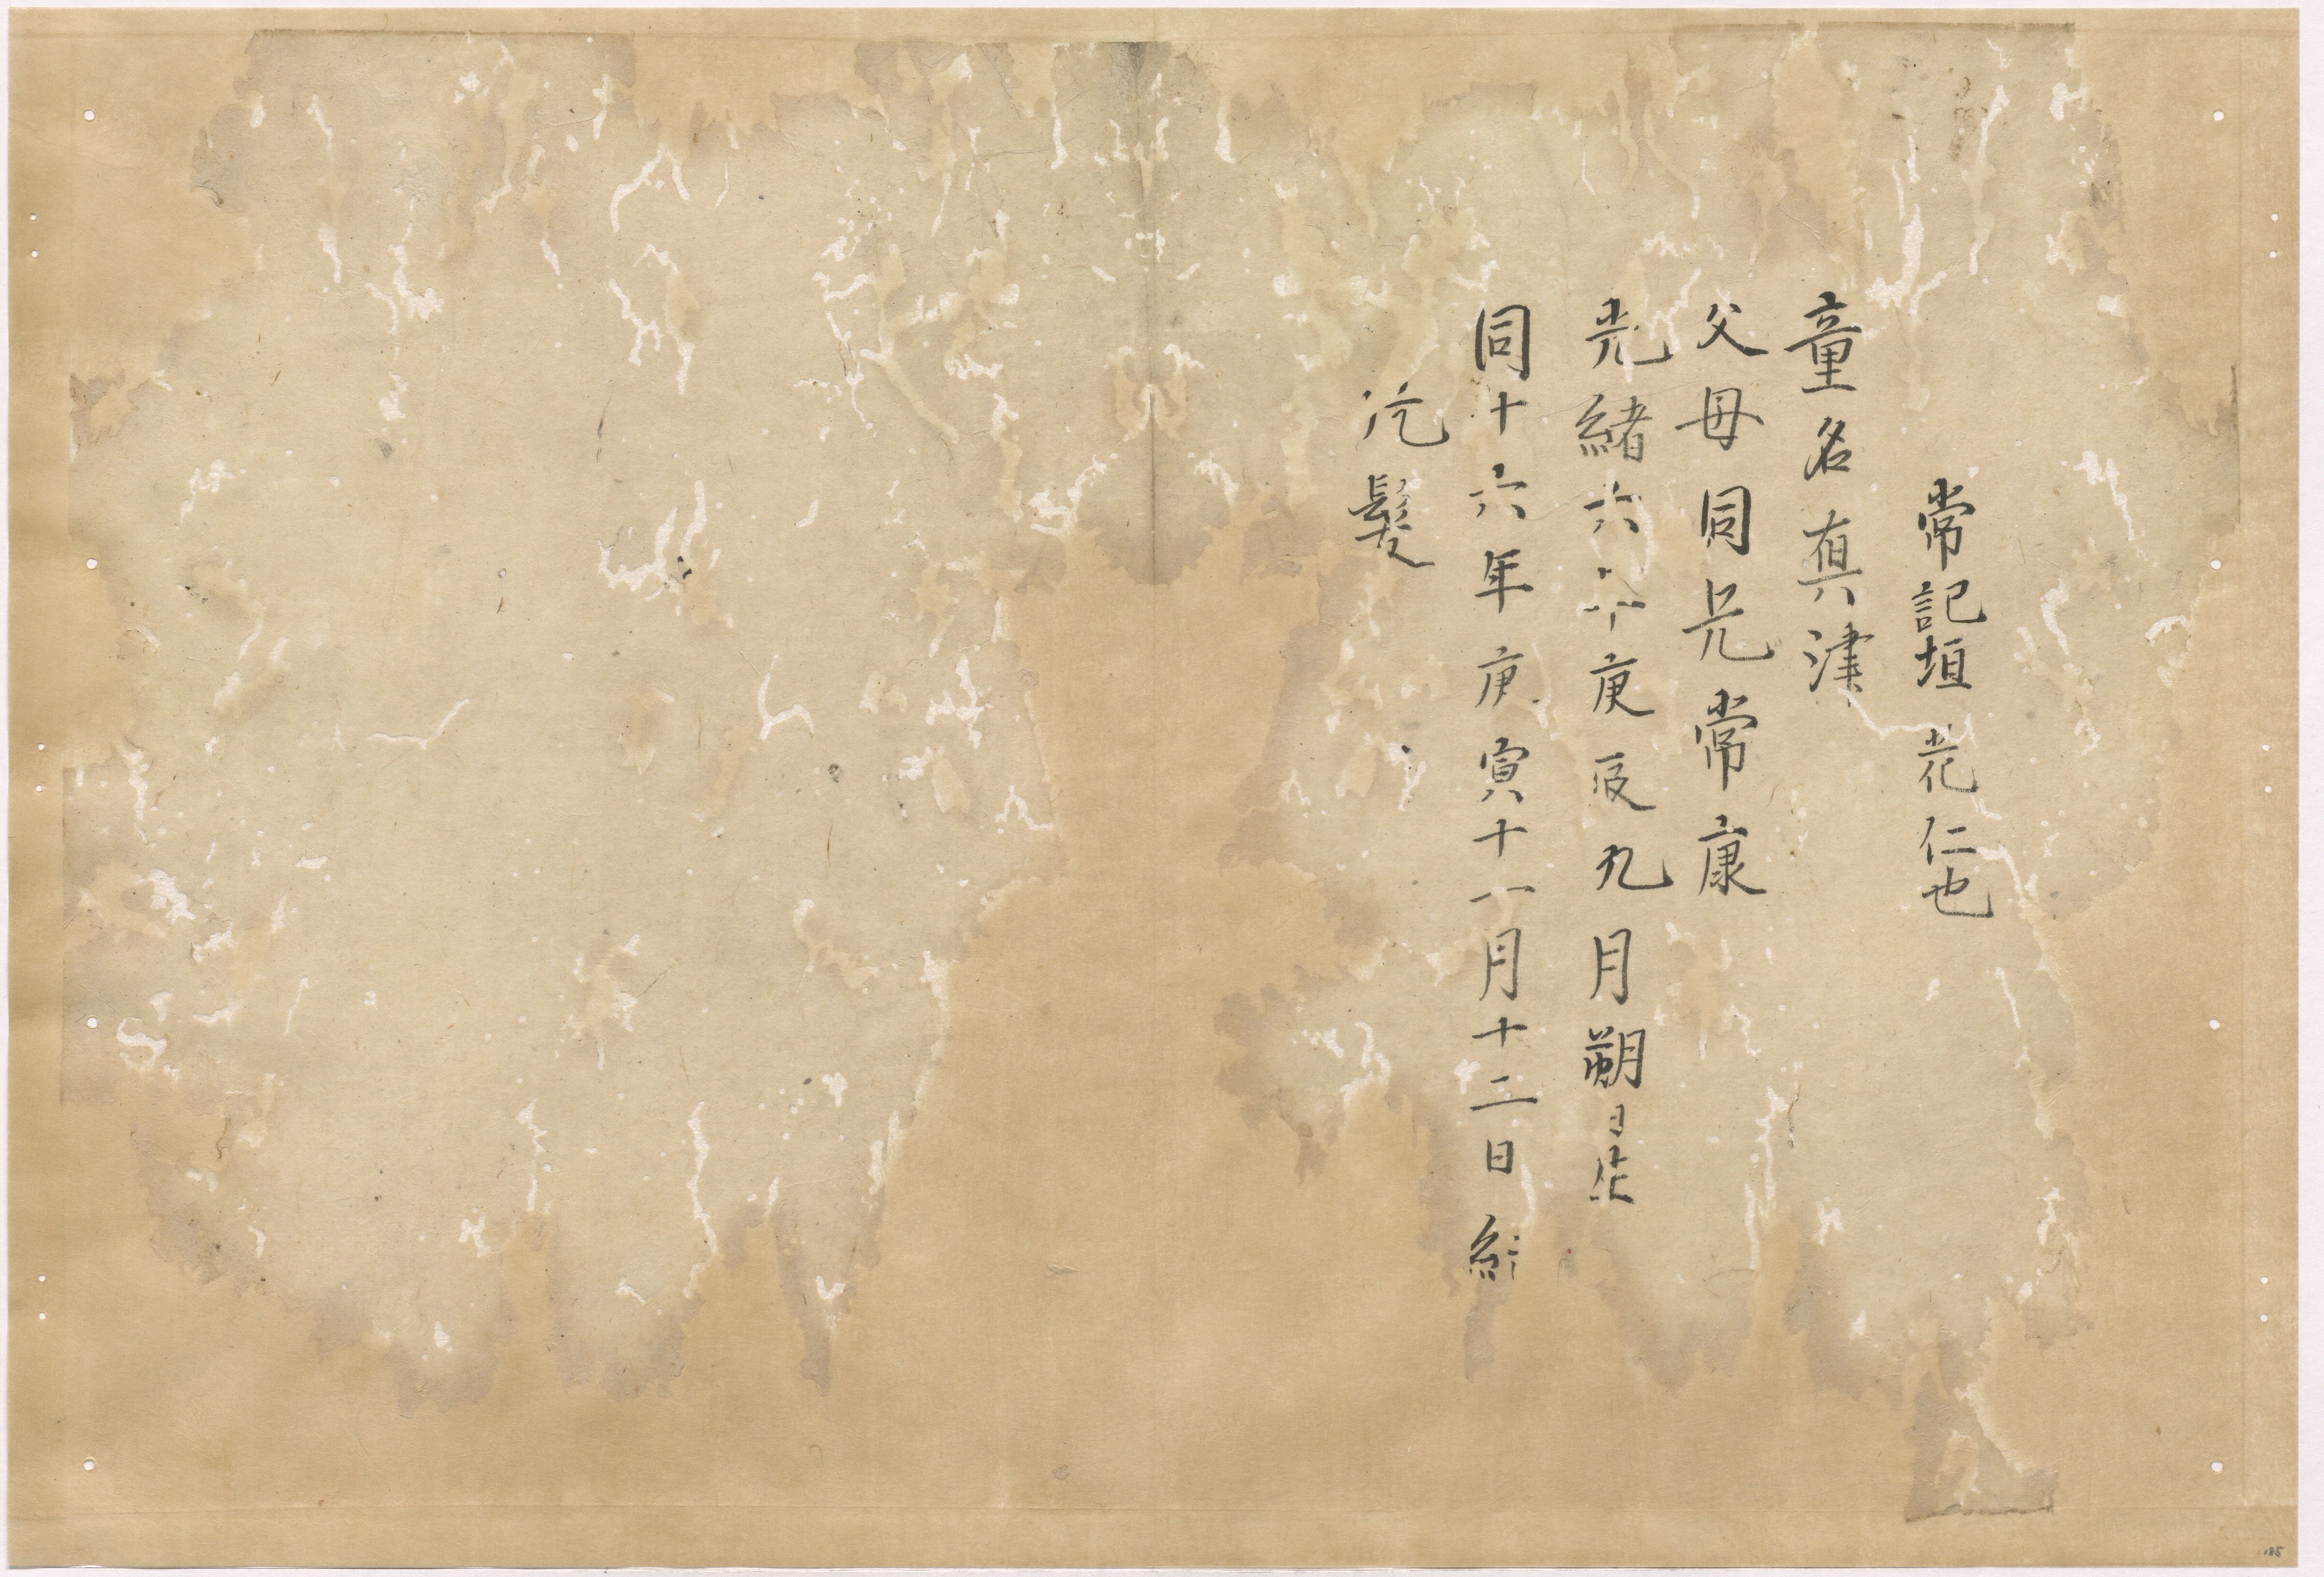 常記垣花仁也
童名真津
父母同兄常康
光緒六年庚辰九月朔日生
同十六年庚寅十一月十二日結
髮